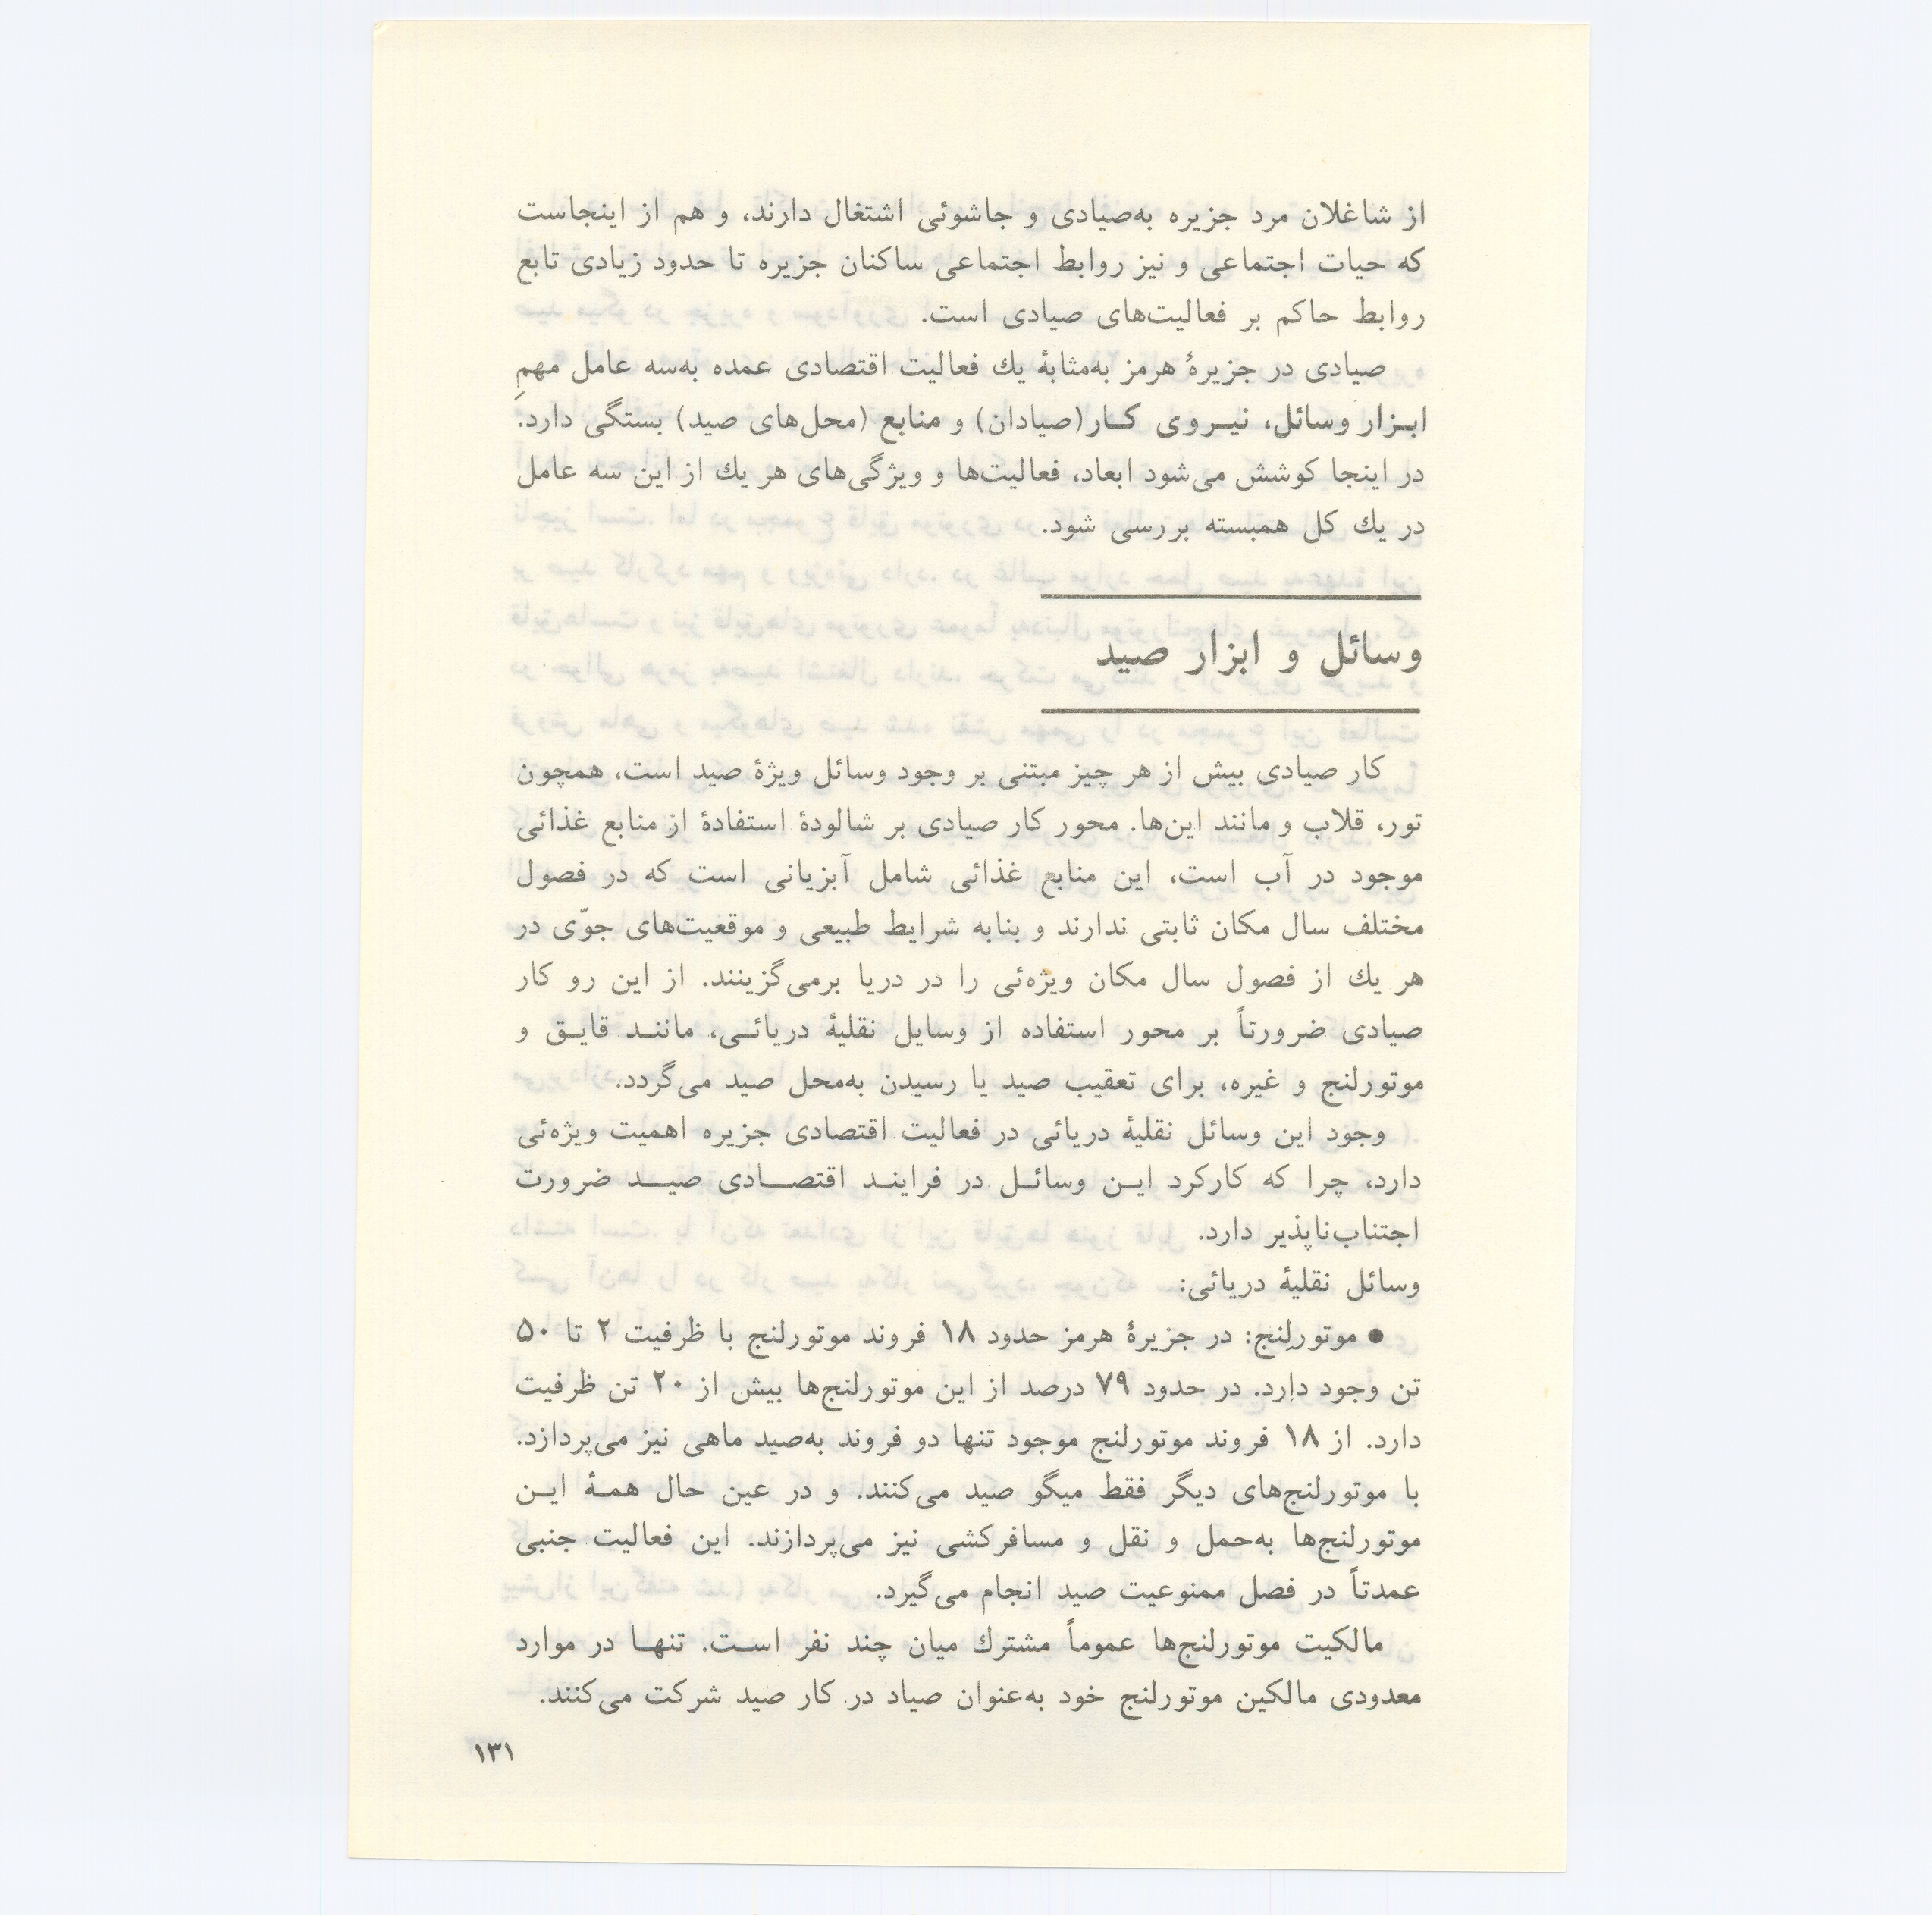 از شاغلان مرد جزیره به‌صیادی و جاشوئی اشتغال دارند، و هم از اینجاست
که حیات اجتماعی و نیز روابط اجتماعی ساکنان جزیره تا حدود زیادی تابع
روابط حاکم بر فعالیت‌های صیادی است.
صیادی در جزیرهٔ هرمز به‌مثابهٔ یك فعالیت اقتصادی عمده به‌سه عامل مهمِ
ابـزار وسائل، نیـروی کـار(صیادان) و منابع (محل‌های صید) بستگی دارد.
در اینجا کوشش می‌شود ابعاد، فعالیت‌ها و ویژگی‌های هر یك از این سه عامل
در یك کل همبسته بررسی شود.
وسائل و ابزار صید
کار صیادی بیش از هر چیز مبتنی بر وجود وسائل ویژهٔ صید است، همچون
تور، قلاب و مانند این‌ها. محور کار صیادی بر شالودهٔ استفادهٔ از منابع غذائی
موجود در آب است، این منابع غذائی شامل آبزیانی است که در فصول
مختلف سال مکان ثابتی ندارند و بنابه شرایط طبیعی و موقعیت‌های جوّی در
هر یك از فصول سال مکان ویژه‌ئی را در دریا برمی‌گزینند. از این رو کار
صیادی ضرورتاً بر محور استفاده از وسایل نقلیهٔ دریائـی، مانند قایـق و
موتورلنج و غیره، برای تعقیب صید یا رسیدن به‌محل صید می‌گردد.
وجود این وسائل نقلیهٔ دریائی در فعالیت اقتصادی جزیره اهمیت ویژه‌ئی
دارد، چرا که کارکرد ایـن وسائـل در فراینـد اقتصـادی صیـد ضرورت
اجتناب‌ناپذیر دارد.
وسائل نقلیهٔ دریائی:
● موتورلِنج: در جزیرهٔ هرمز حدود ۱۸ فروند موتورلنج با ظرفیت ۲ تا ۵۰
تن وجود دارد. در حدود ۷۹ درصد از این موتورلنج‌ها بیش از ۲۰ تن ظرفیت
دارد. از ۱۸ فروند موتورلنج موجود تنها دو فروند به‌صید ماهی نیز می‌پردازد.
با موتورلنج‌های دیگر فقط میگو صید می‌کنند. و در عین حال همـهٔ ایـن
موتورلنج‌ها به‌حمل و نقل و مسافرکشی نیز می‌پردازند. این فعالیت جنبی
عمدتاً در فصل ممنوعیت صید انجام می‌گیرد.
مالکیت موتورلنج‌ها عموماً مشترك میان چند نفر اسـت. تنهـا در موارد
معدودی مالکین موتورلنج خود به‌عنوان صیاد در کار صید شرکت می‌کنند.
۱۳۱